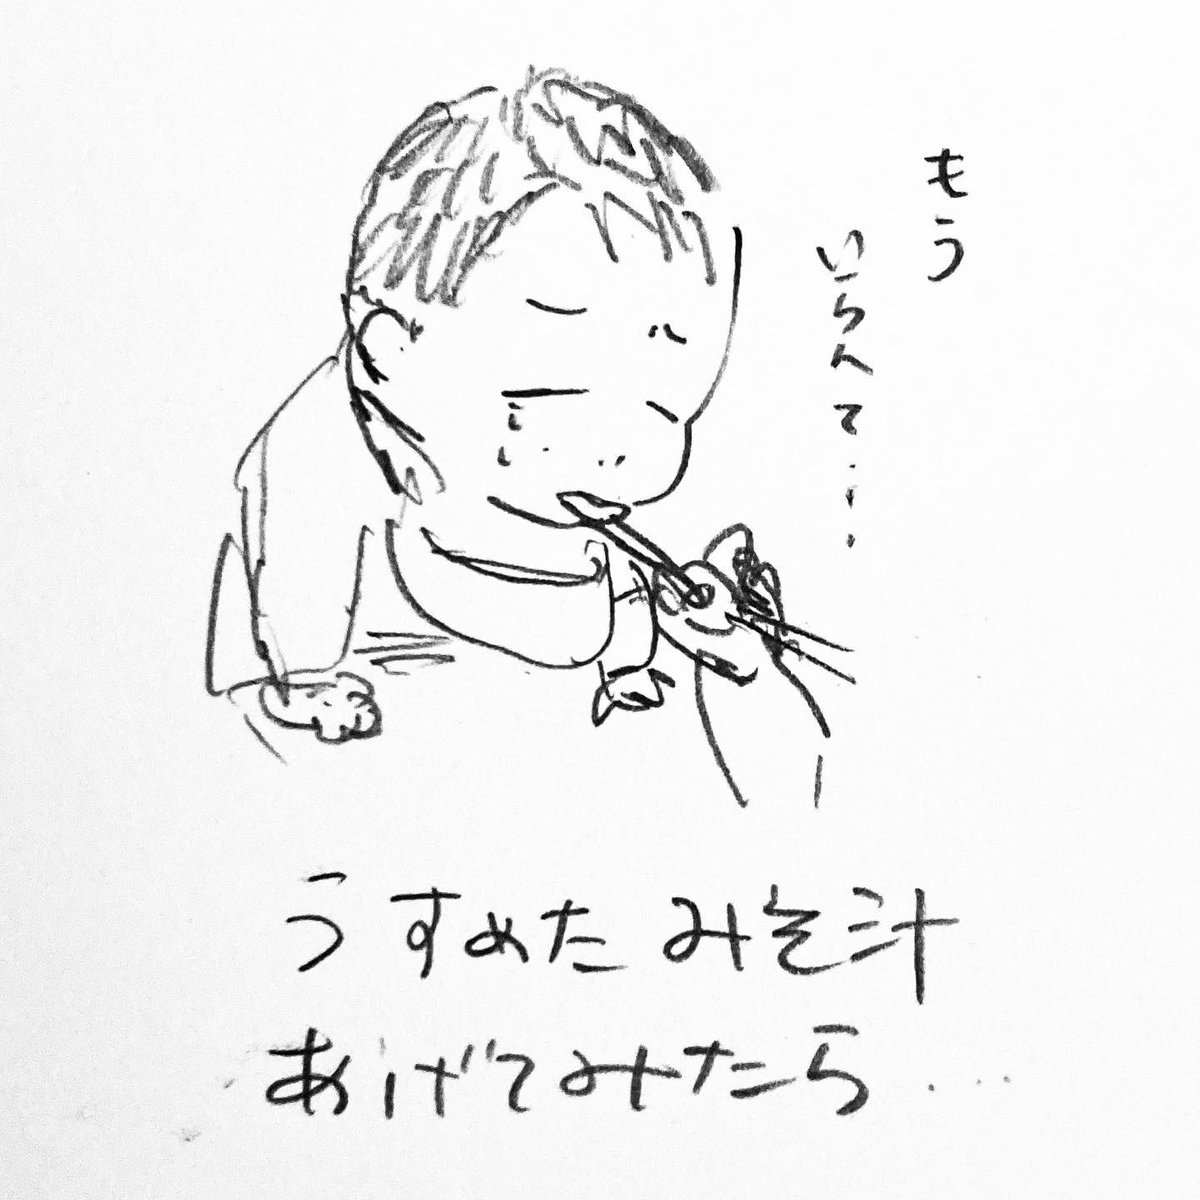 もう
いらんて・・・
うすめたみそ汁
あげてみたら...